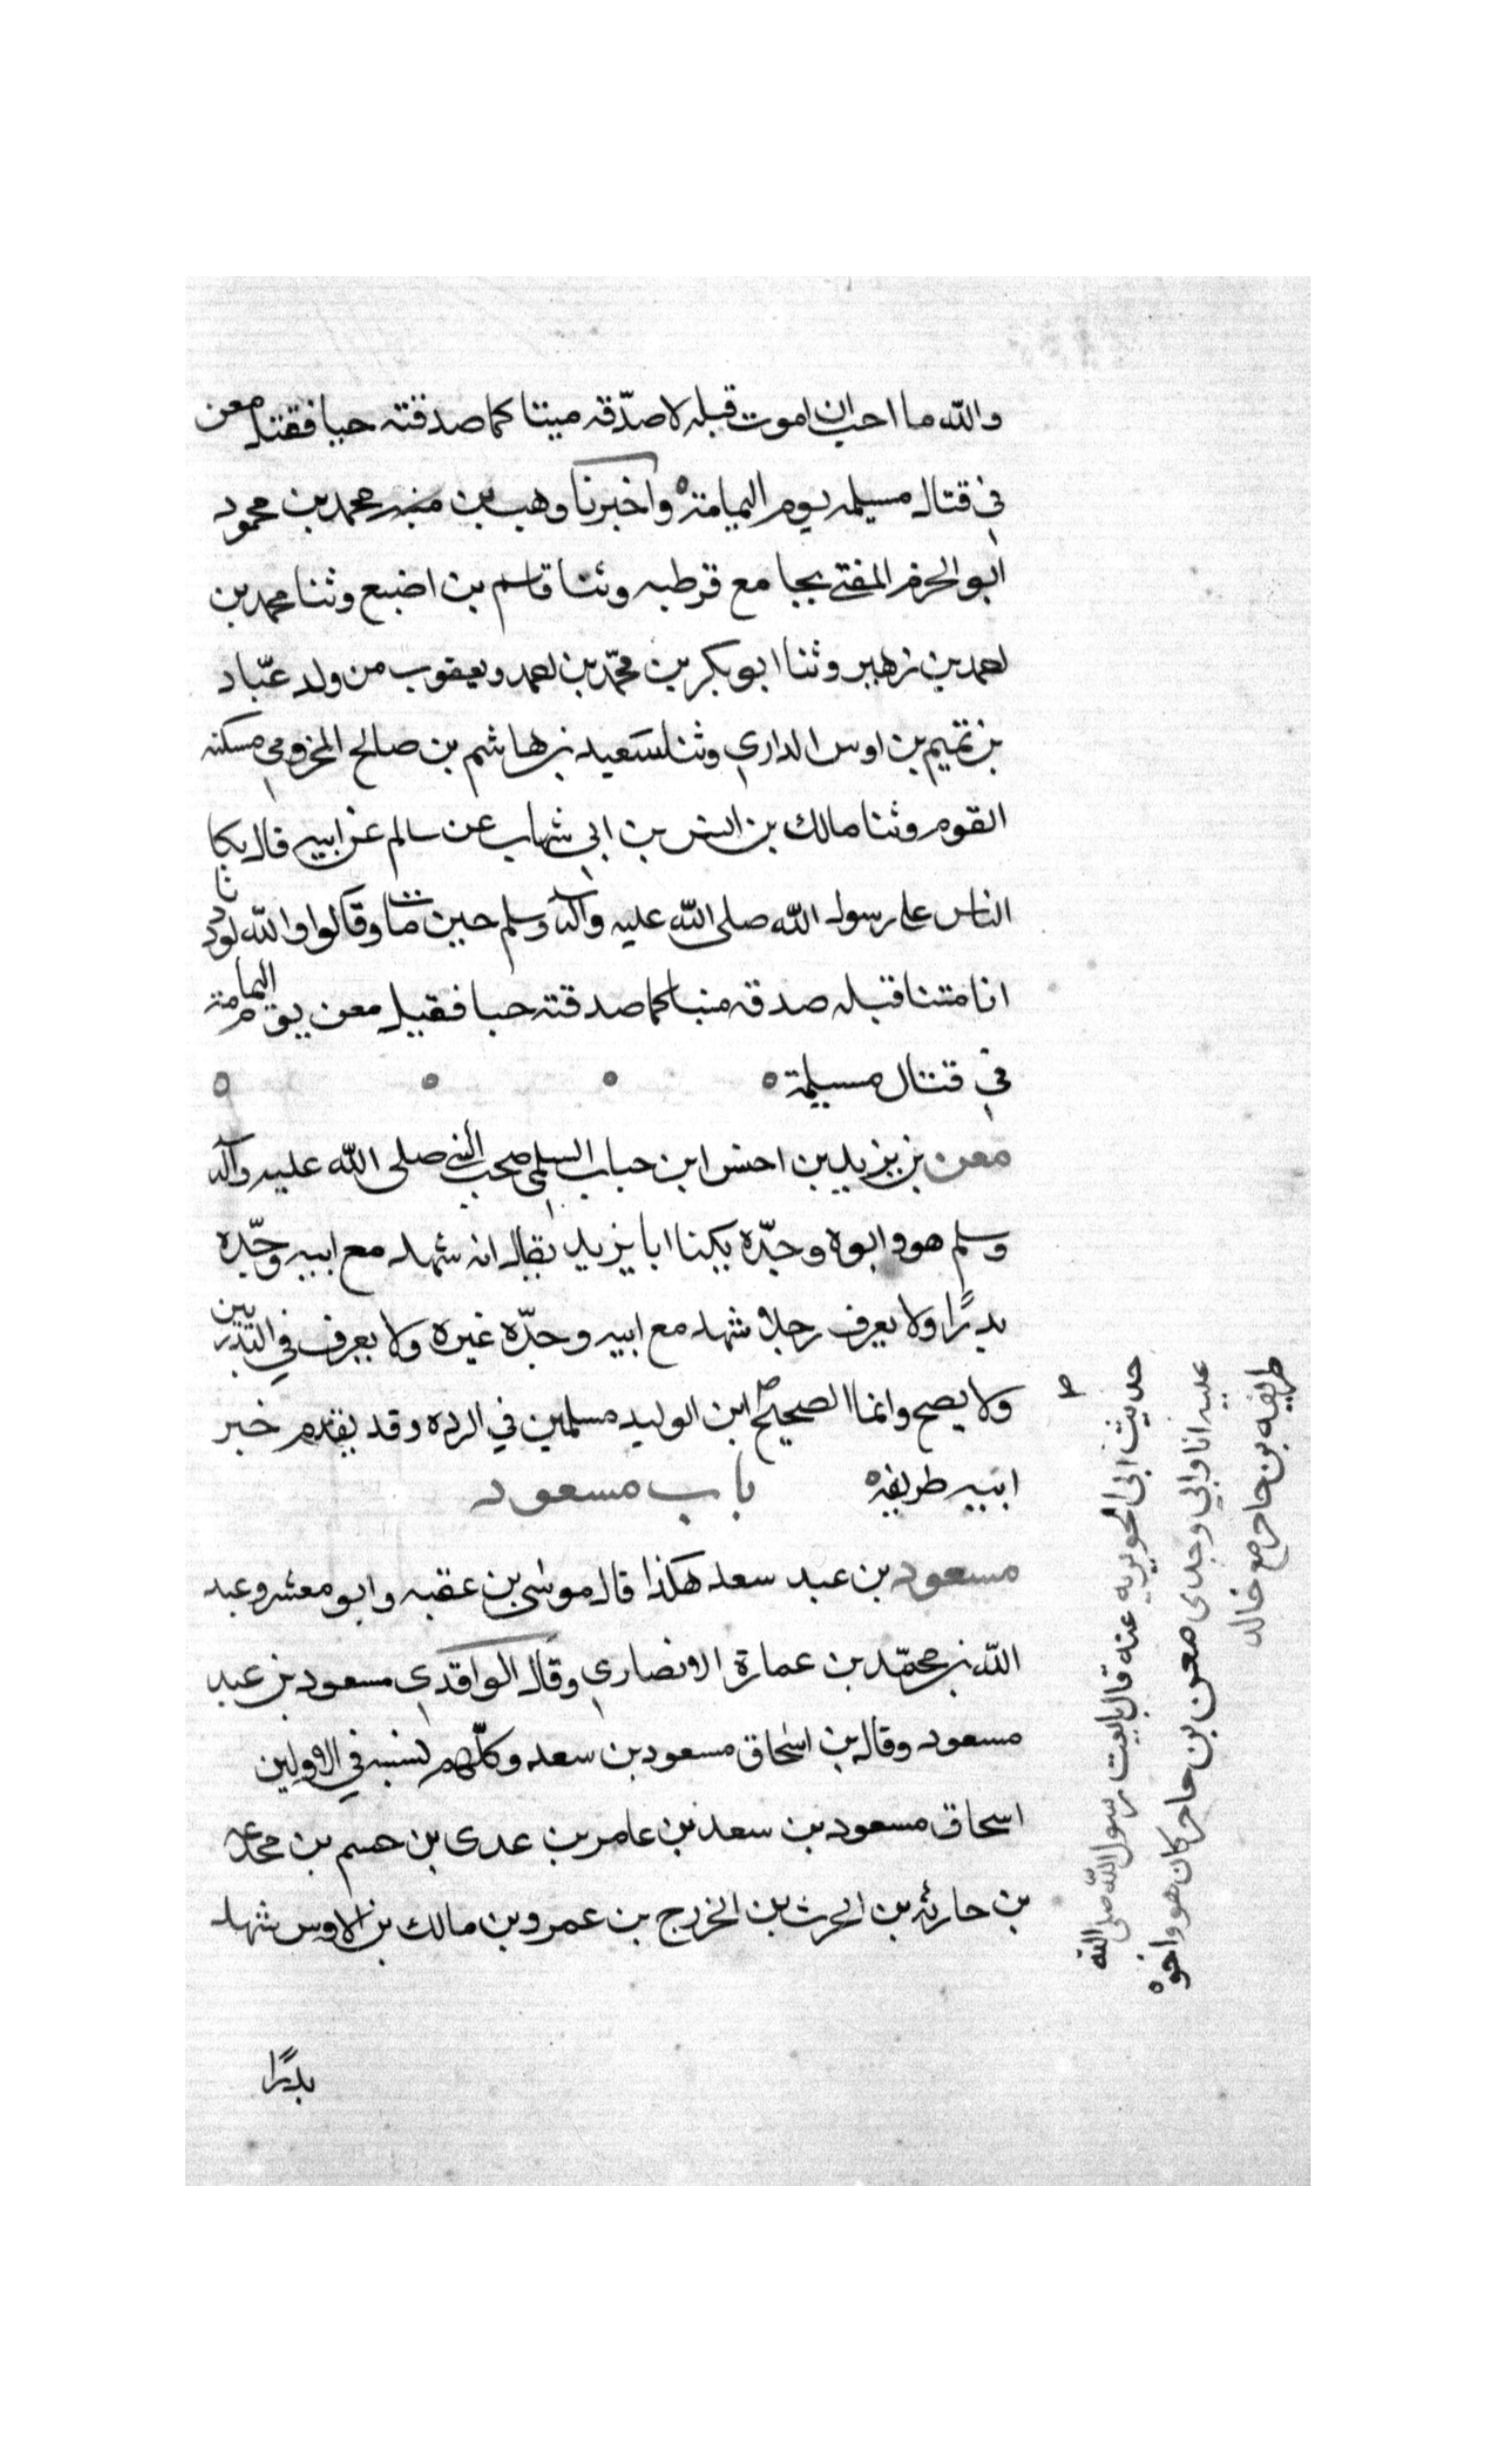 والله ما احب ان اموت قبله لاصدّقه ميتا كما صدقته حيا فقتل معن
في قتال مسيلمه يوم اليمامة ٥ واخبرنا وهب بن منبه محمد بن محمود
ابو الحزم المفتى بجامع قرطبه وثنا قاسم بن اضبع وثنا محمد بن
احمد بن زهير وثنا ابو بكر بن محمّد بن احمد ويعقوب من ولد عبّاد
بن تميم بن اوس الداري وثنا سعيد بن هاشم بن صالح المخزومي مسكنه
القوم وثنا مالك بن انس بن ابي شهاب عن سالم عن ابيه قال بكا
الناس على رسول الله صلى الله عليه وآله وسلم حين مات وقالوا والله لوددنا
انا متنا قبله صدقه منبا كما صدقته حبا فقيل معن يوم اليمامة
في قتال مسيلمة ٥ ٥ ٥ ٥
معن بن يزيد بن احنس ابن حباب السلمي صحب النبي صلى الله عليه وآله
وسلم هو وابوه وجدّه يكنا ابا يزيد يقال انه شهد مع ابيه وجدّه
بدرًا ولا يعرف رجلا شهد مع ابيه وجدّه غيره ولا يعرف في البدريين
ولا يصح وانما الصحيح ابن الوليد مسلمين في الرده وقد يقدم خبر
ابيه طريفه ٥ باب مسعود
مسعود بن عبد سعد هكذا قال موسى بن عقبه وابو معشر وعبد
الله بن محمّد بن عمارة الانصاري وقال الواقدي مسعود بن عبد
مسعود وقال بن اسحاق مسعود بن سعد وكلّهم نسبه في الاولين
اسحاق مسعود بن سعد بن عامر بن عدى بن حسم بن محدعه
بن حارثه بن الحرث بن الخزرج بن عمرو بن مالك بن الاوس شهد
بدرًا
حديث ابى الحويريه عنه قال بايعت رسول الله صلى الله
عليه انا وابي وجدى معن بن حاجر كان هو واخوه
طريفه بن حاجر مع خالد